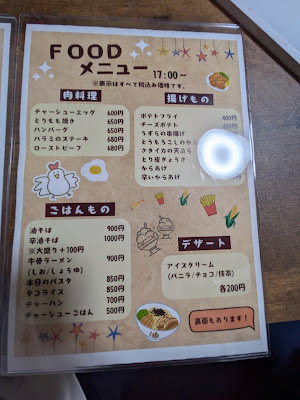 FOOD
メニュー
17:00~
※表示はすべて税込み価格です。
肉料理
チャーシューエッグ 600円
とりもも焼き 650円
ハンバーグ 650円
ハラミのステーキ 680円
ローストビーフ 680円
揚げもの
ポテトフライ 400円
チーズポテト
うずらの串揚げ
とうもろこしのから
さきイカの天ぷら
とり皮ぎょうざ
からあげ
辛いからあげ
ごはんもの
油そば 900円
辛油そば 1000円
※大盛り+100円
牛骨ラーメン 900円
(しお/しょうゆ)
本日のパスタ 850円
タコライス 850円
チャーハン 700円
チャーシューごはん 500円
デザート
アイスクリーム
(バニラ/チョコ/抹茶)
各200円
裏面もあります!